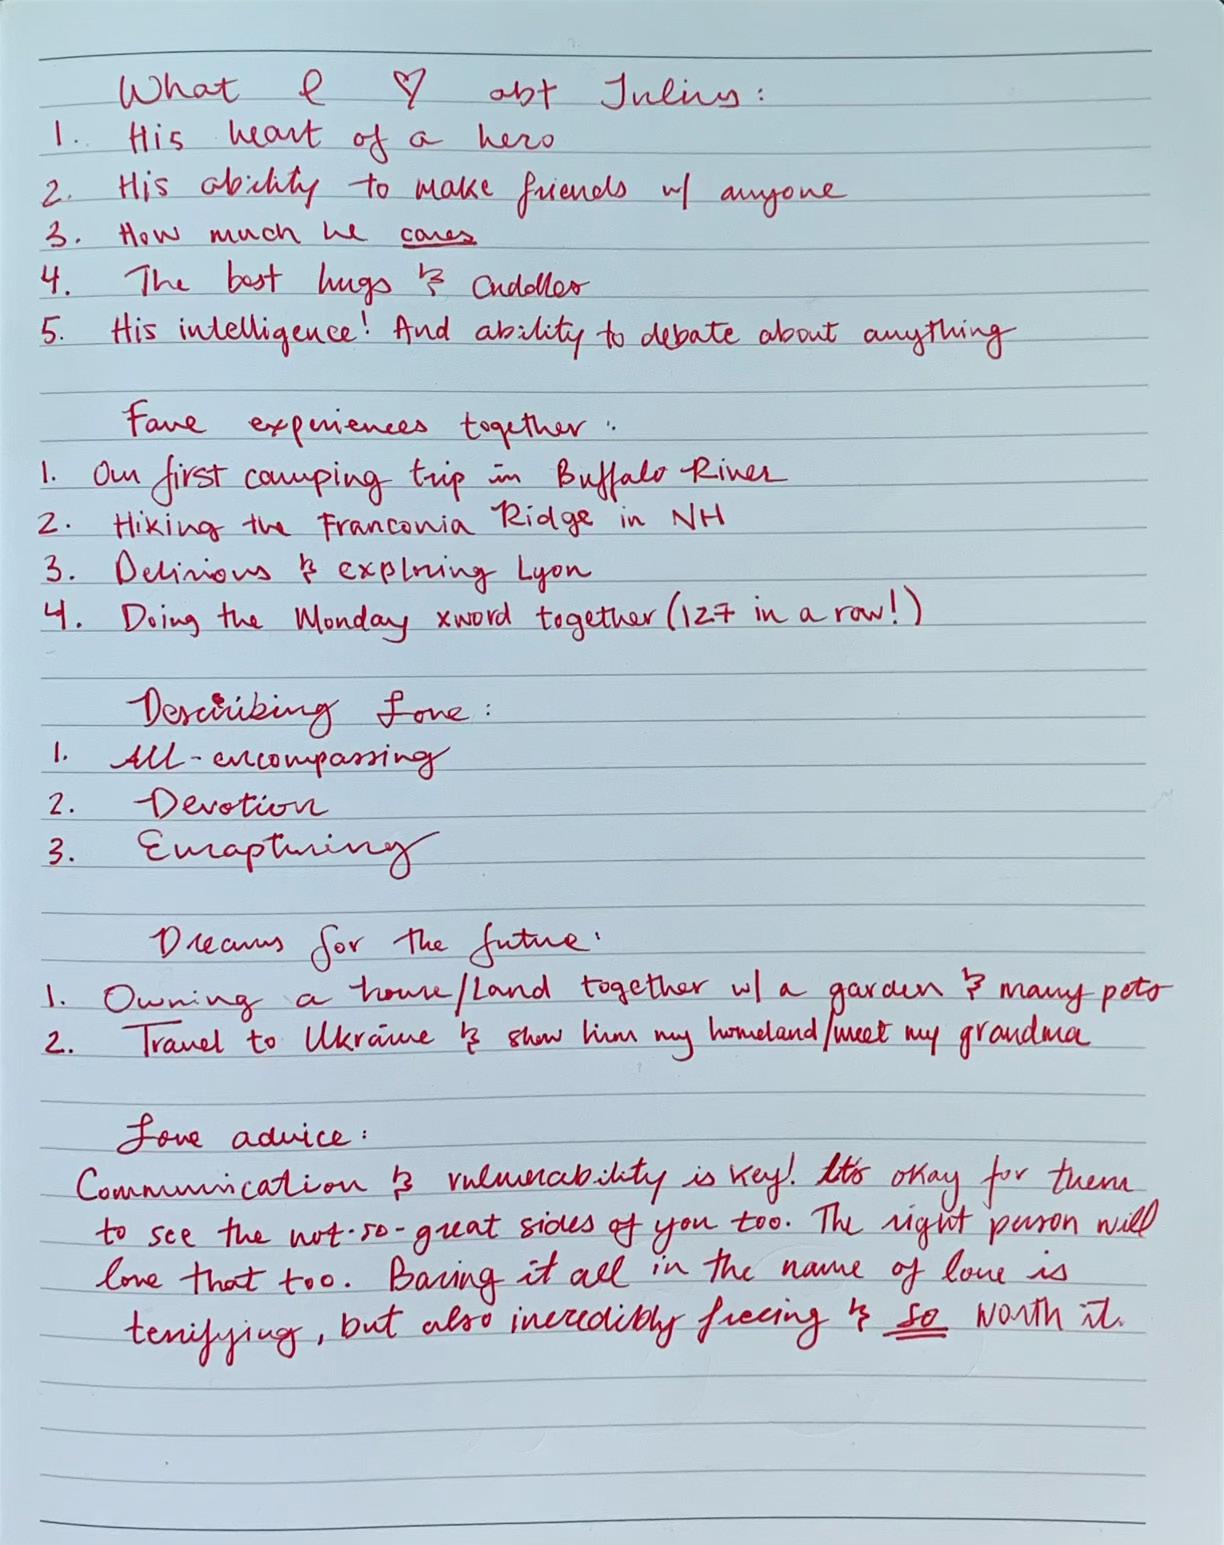 What I ♡ abt Julius:
1. His heart of a hero
2. His ability to make friends w/ anyone
3. How much he cares
4. The best hugs & cuddles
5. His intelligence! And ability to debate about anything
Fave experiences together:
1. Our first camping trip in Buffalo River
2. Hiking the Franconia Ridge in NH
3. Delirious & exploring Lyon
4. Doing the Monday xword together (127 in a row!)
Describing Love:
1. All-encompassing
2. Devotion
3. Enrapturing
Dreams for the future:
1. Owning a house/land together w/ a garden & many pets
2. Travel to Ukraine & show him my homeland/meet my grandma
Love advice:
Communication & vulnerability is key! It's okay for them
to see the not-so-great sides of you too. The right person will
love that too. Baring it all in the name of love is
terrifying, but also incredibly freeing & so worth it.